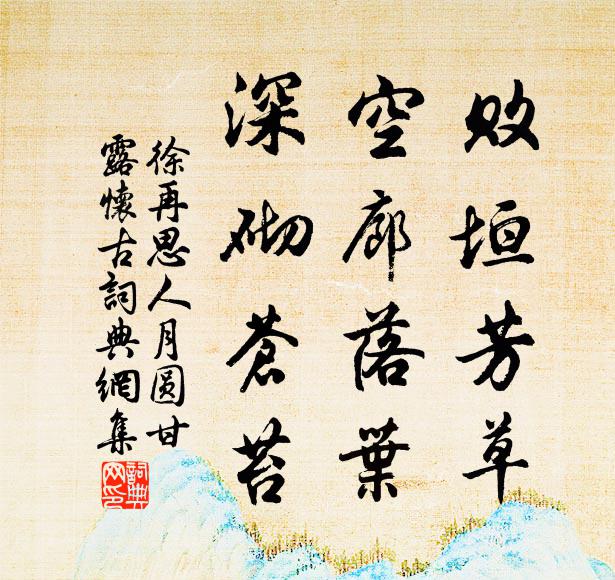 败垣芳草
空廊落葉
深砌蒼苔
徐再思人月圆甘
露懷古詞典網集
詞典
网印